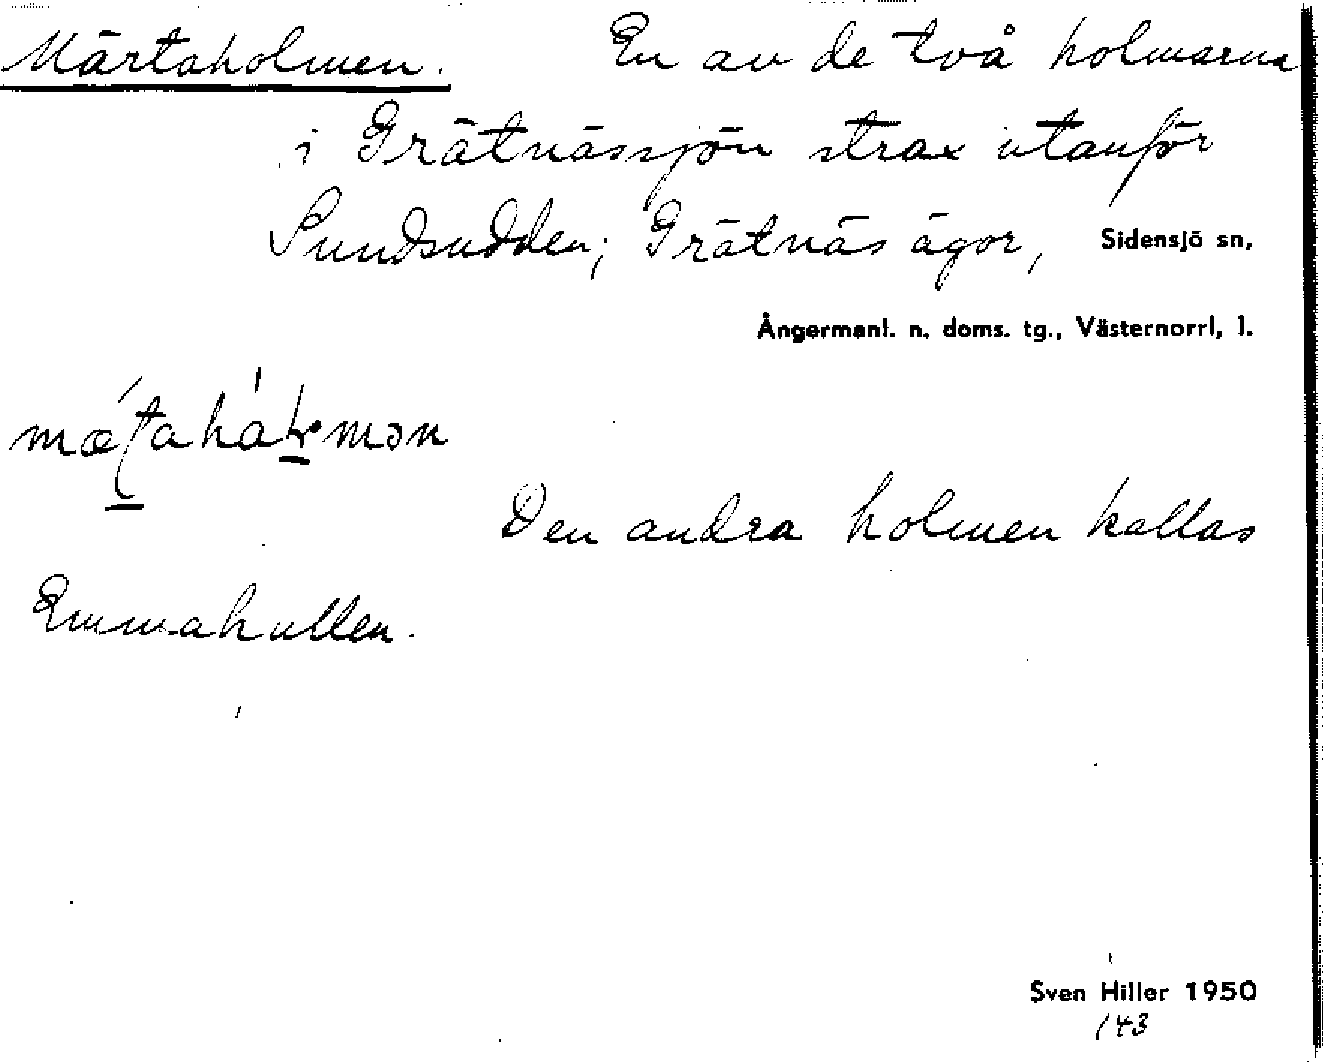 Märtaholmen. En av de två holmarna
i Grätnässjön strax utanför
Sundsudden; Grätnäs ägor, Sidensjö sn,
Ångermanl. n. doms. tg., Västernorrl, l.
Den andra holmen kallas
Emmahullen.
Sven Hiller 1950
143